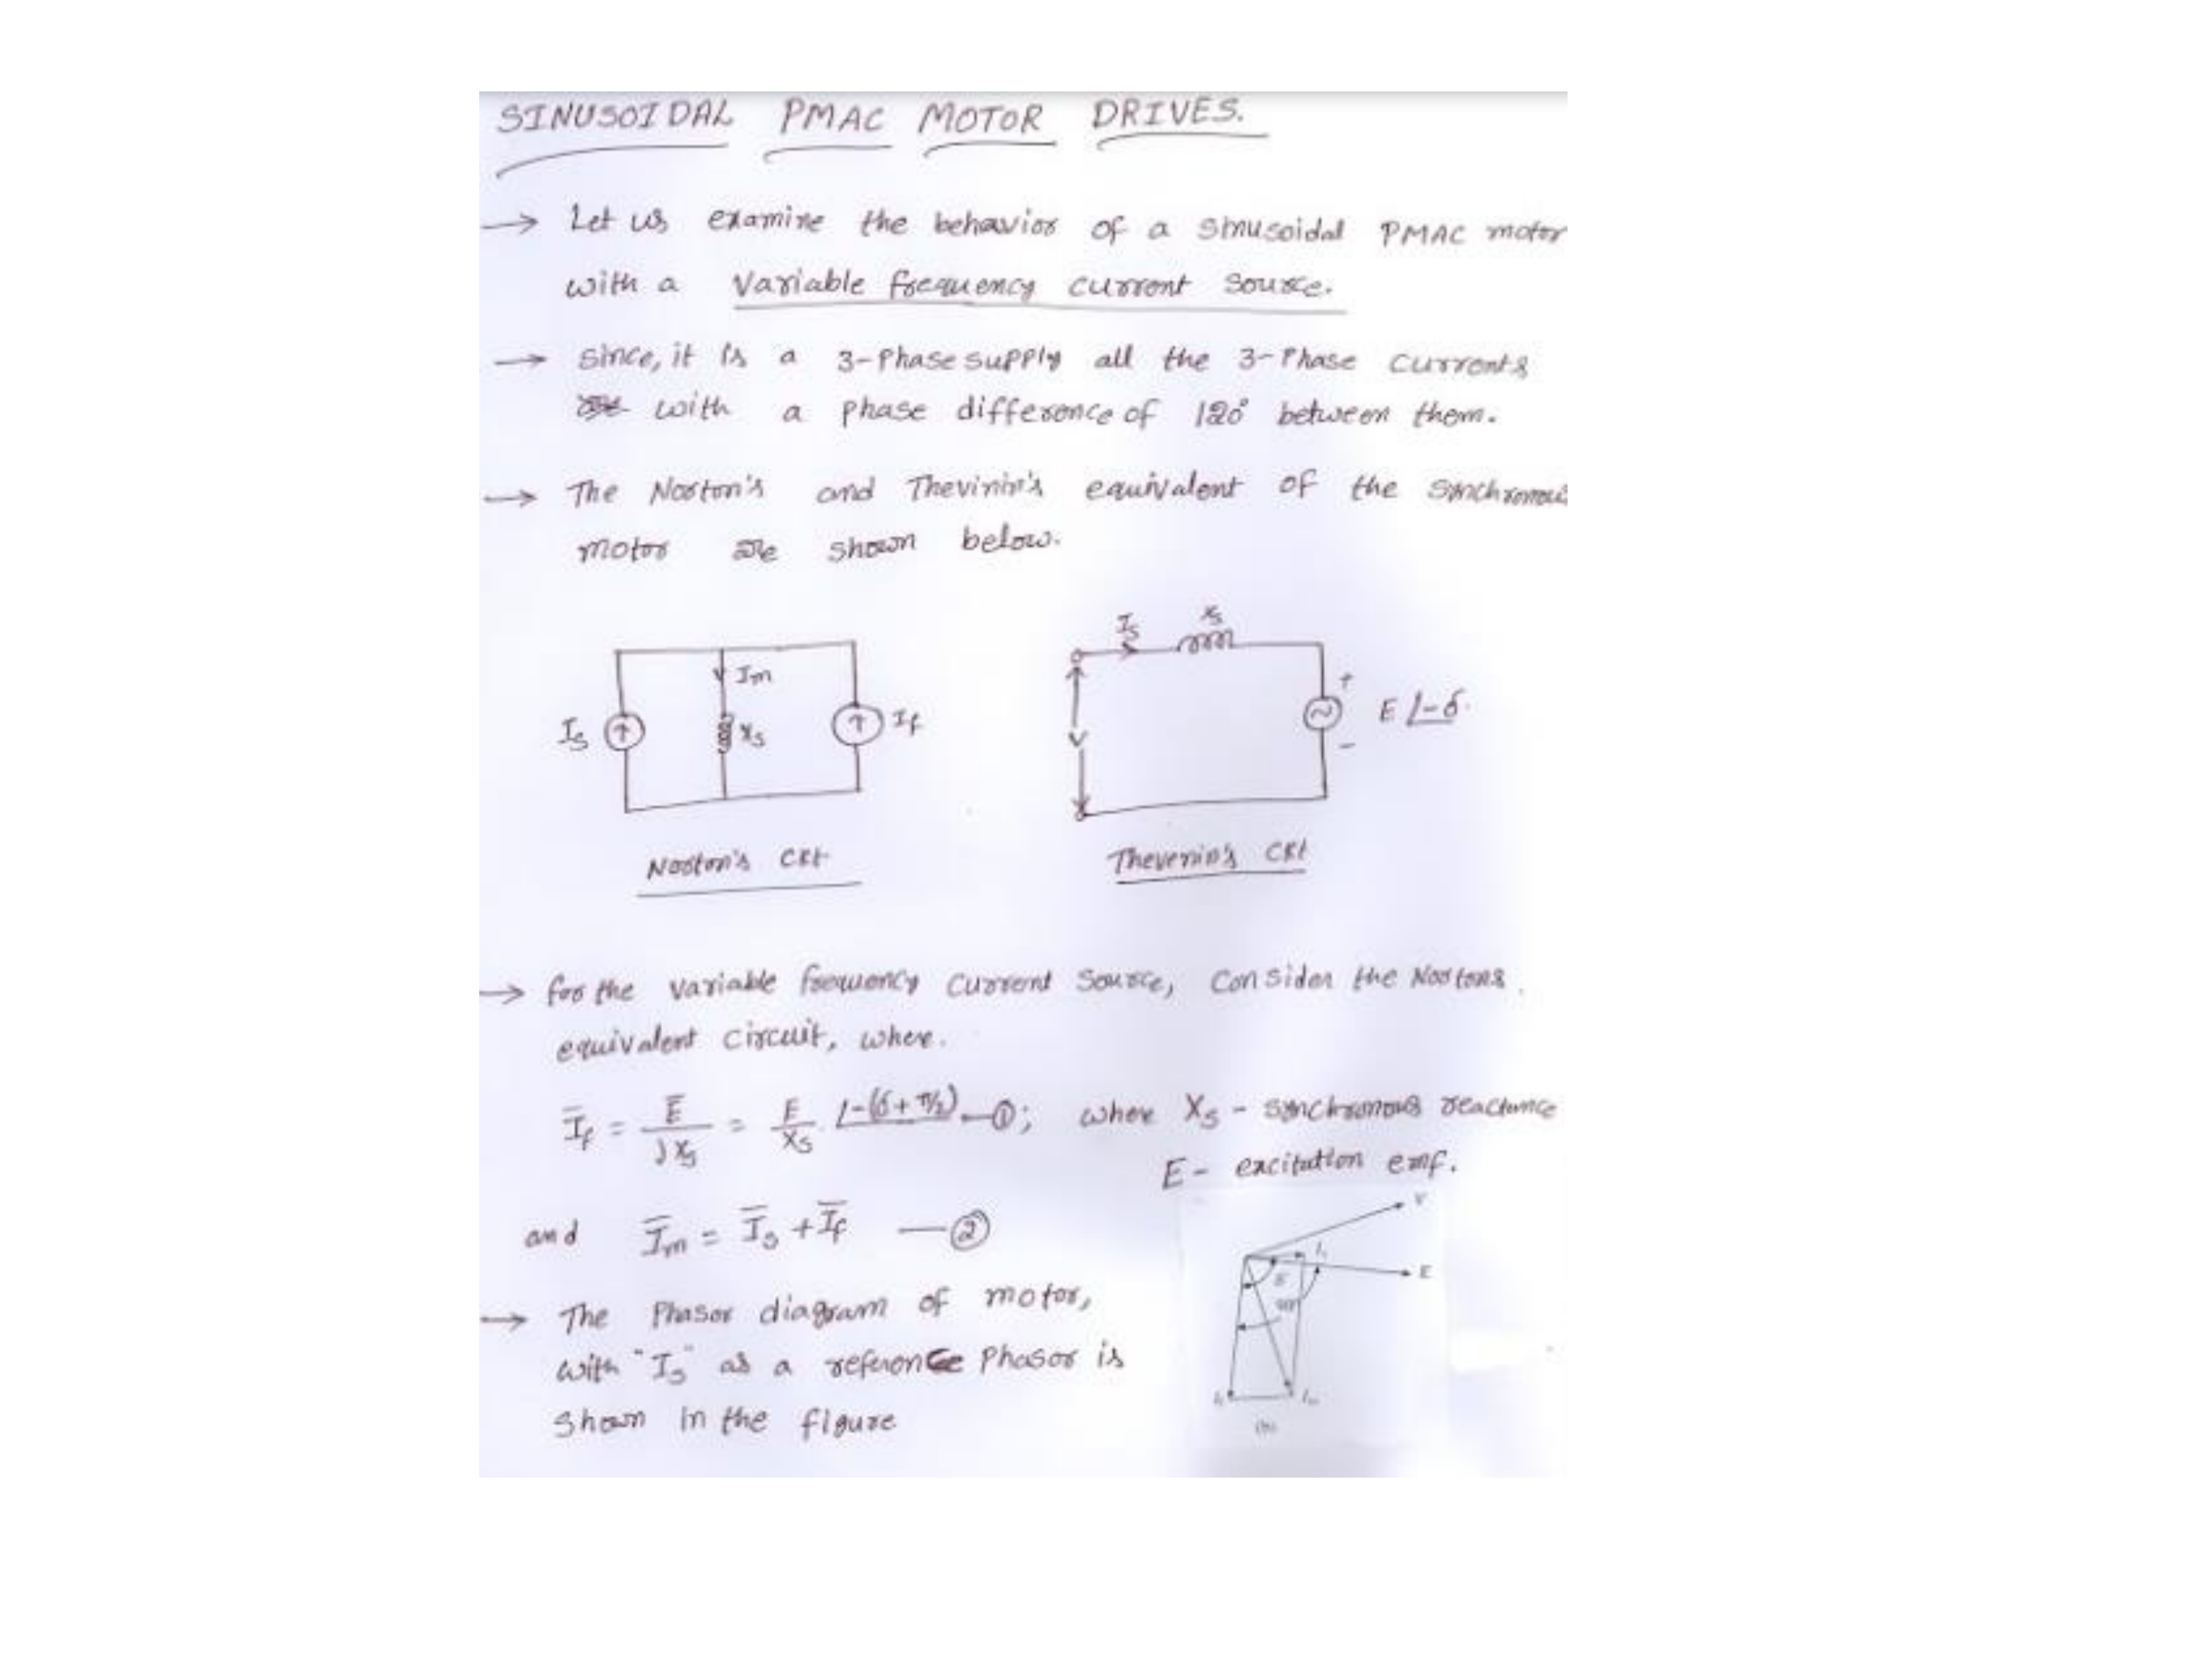 SINUSOIDAL PMAC MOTOR DRIVES.
→ Let us examine the behavior of a sinusoidal PMAC motor
with a Variable frequency current source.
→ since, it is a 3-Phase supply all the 3-Phase currents
with a phase difference of 120° between them.
→ The Norton's and Thevinin's equivalent of the synchronous
motor are shown below.
Is Im Xs If
Is Xs V + E ∠-δ. -
Norton's Ckt
Thevenin's Ckt
→ for the variable frequency current source, Consider the Nortons
equivalent circuit, where.
I̅f = E̅/jXs = E/Xs ∠-(δ+π/2) —①; where Xs - synchronous reactance
E - excitation emf.
and I̅m = I̅s + I̅f —②
→ The Phasor diagram of motor,
with "Is" as a reference phasor is
shown in the figure
V
Is
E
δ'
90°
If Im
(b)